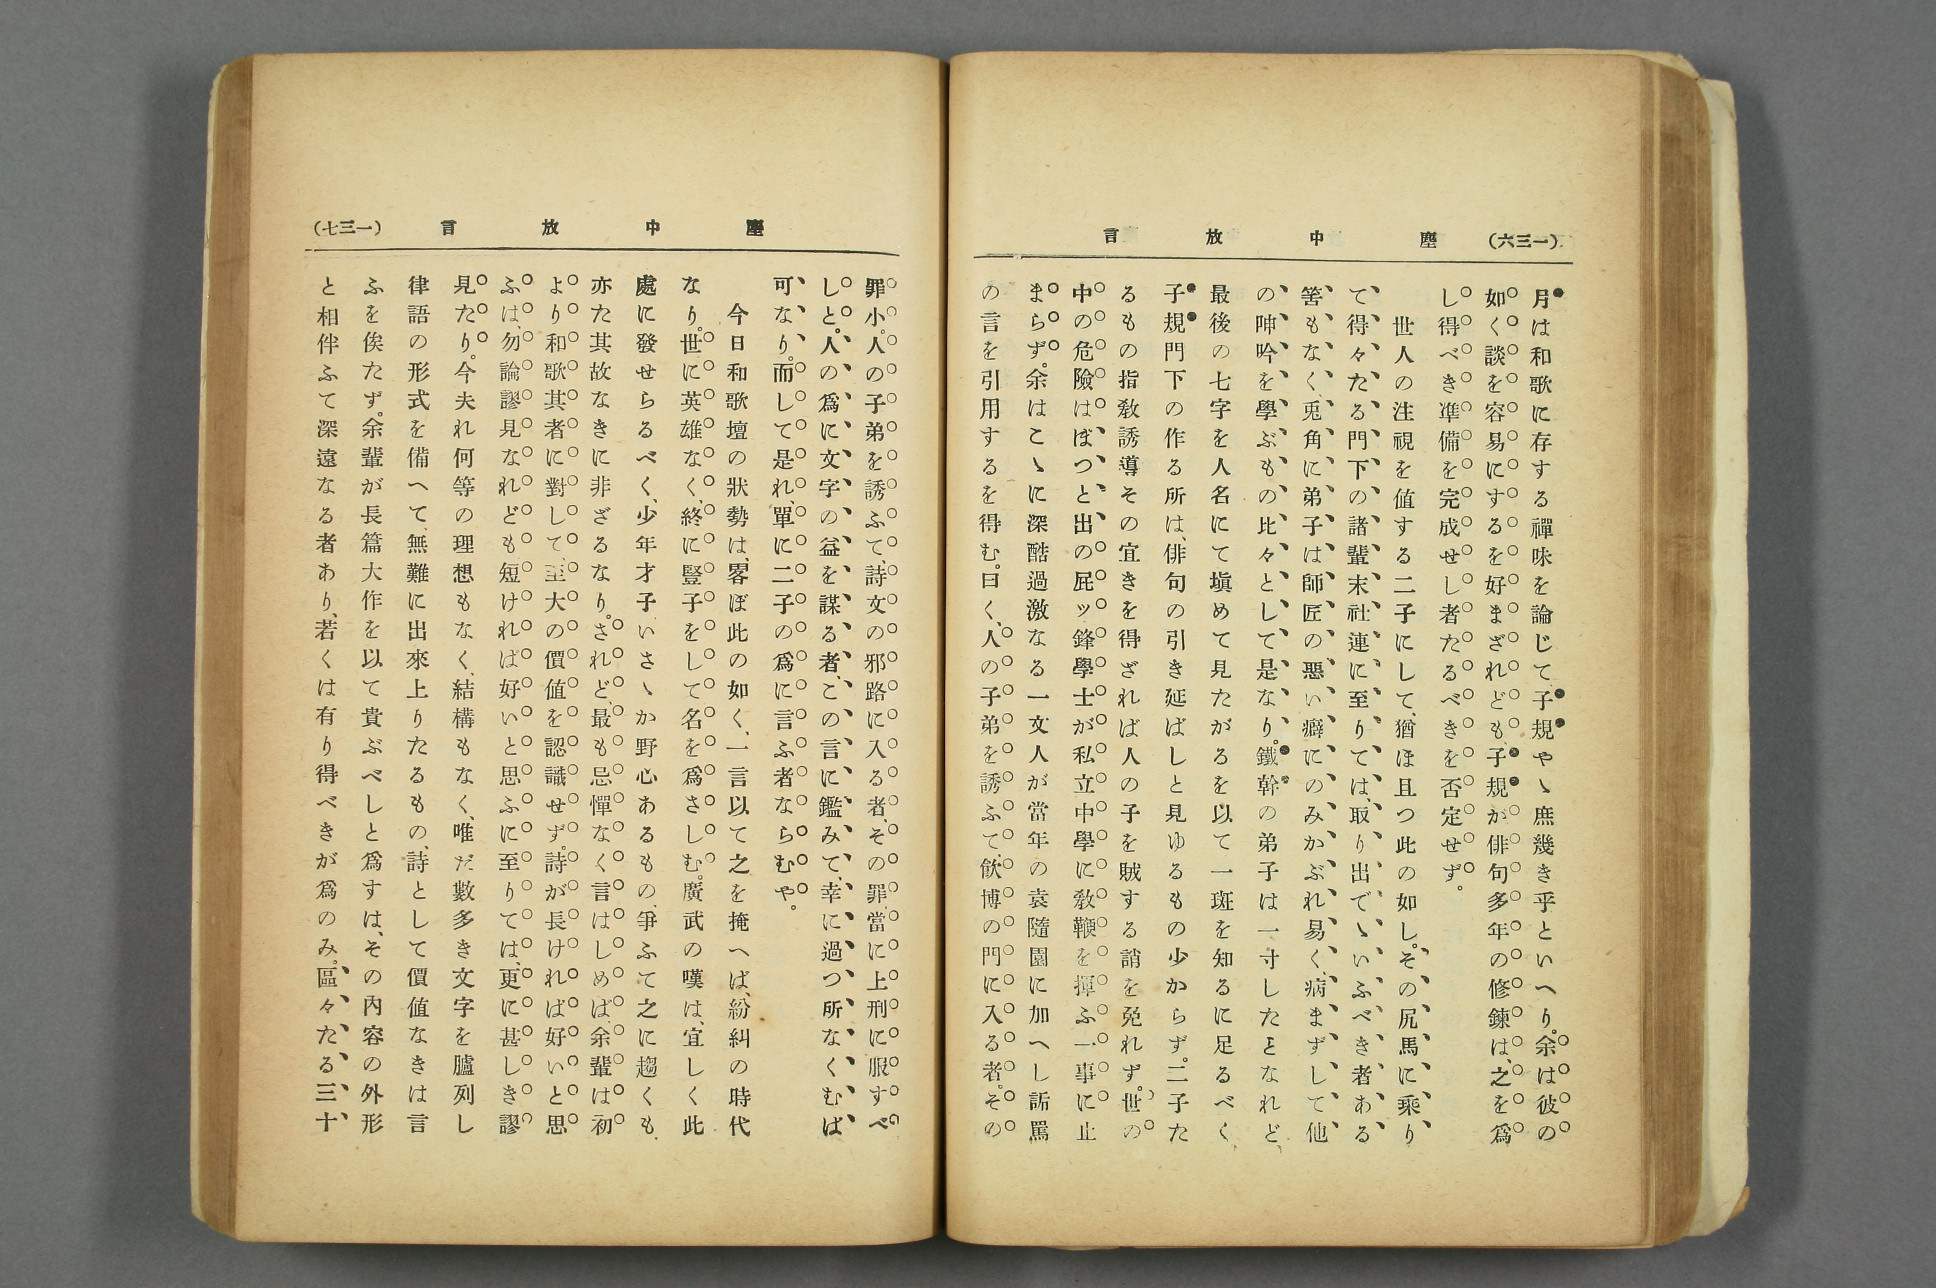 (一三六) 塵中放言
月は和歌に存する禪味を論じて子規やゝ庶幾き乎といへり。余は彼の
如く談を容易にするを好まざれども、子規が俳句多年の修鍊は、之を爲
し得べき準備を完成せし者たるべきを否定せず。
世人の注視を値する二子にして、猶ほ且つ此の如し。その尻馬に乘り
て得々たる門下の諸輩末社連に至りては、取り出でゝいふべき者ある
筈もなく、兎角に弟子は師匠の悪い癖にのみかぶれ易く、病まずして他
の呻吟を學ぶもの比々として是なり。鐵幹の弟子は一寸したことなれど、
最後の七字を人名にて塡めて見たがるを以て一斑を知るに足るべく、
子規門下の作る所は、俳句の引き延ばしと見ゆるもの少からず。二子た
るもの指敎誘導その宜きを得ざれば人の子を賊する誚を免れず。世の
中の危險はぽつと出の屁ッ鋒學士が私立中學に敎鞭を揮ふ一事に止
まらず。余はこゝに深酷過激なる一文人が當年の袁隨園に加へし詬罵
の言を引用するを得む。曰く、人の子弟を誘ふて、飮博の門に入る者。その
(一三七) 塵中放言
罪小。人の子弟を誘ふて、詩文の邪路に入る者、その罪、當に上刑に服すべ
しと。人の爲に文字の益を謀る者、この言に鑑みて、幸に過つ所なくむば
可なり。而して是れ、單に二子の爲に言ふ者ならむや。
今日和歌壇の狀勢は、畧ぼ此の如く、一言以て之を掩へば、紛糾の時代
なり。世に英雄なく、終に豎子をして名を爲さしむ。廣武の嘆は、宜しく此
處に發せらるべく、少年才子いさゝか野心あるもの、爭ふて之に趨くも、
亦た其故なきに非ざるなり。されど、最も忌憚なく言はしめば、余輩は初
より和歌其者に對して、至大の價値を認識せず。詩が長ければ好いと思
ふは、勿論謬見なれども、短ければ好いと思ふに至りては、更に甚しき謬
見たり。今夫れ何等の理想もなく、結構もなく、唯だ數多き文字を臚列し
律語の形式を備へて、無難に出來上りたるもの、詩として價値なきは言
ふを俟たず。余輩が長篇大作を以て貴ぶべしと爲すは、その內容の外形
と相伴ふて深遠なる者あり、若くは有り得べきが爲のみ。區々たる三十